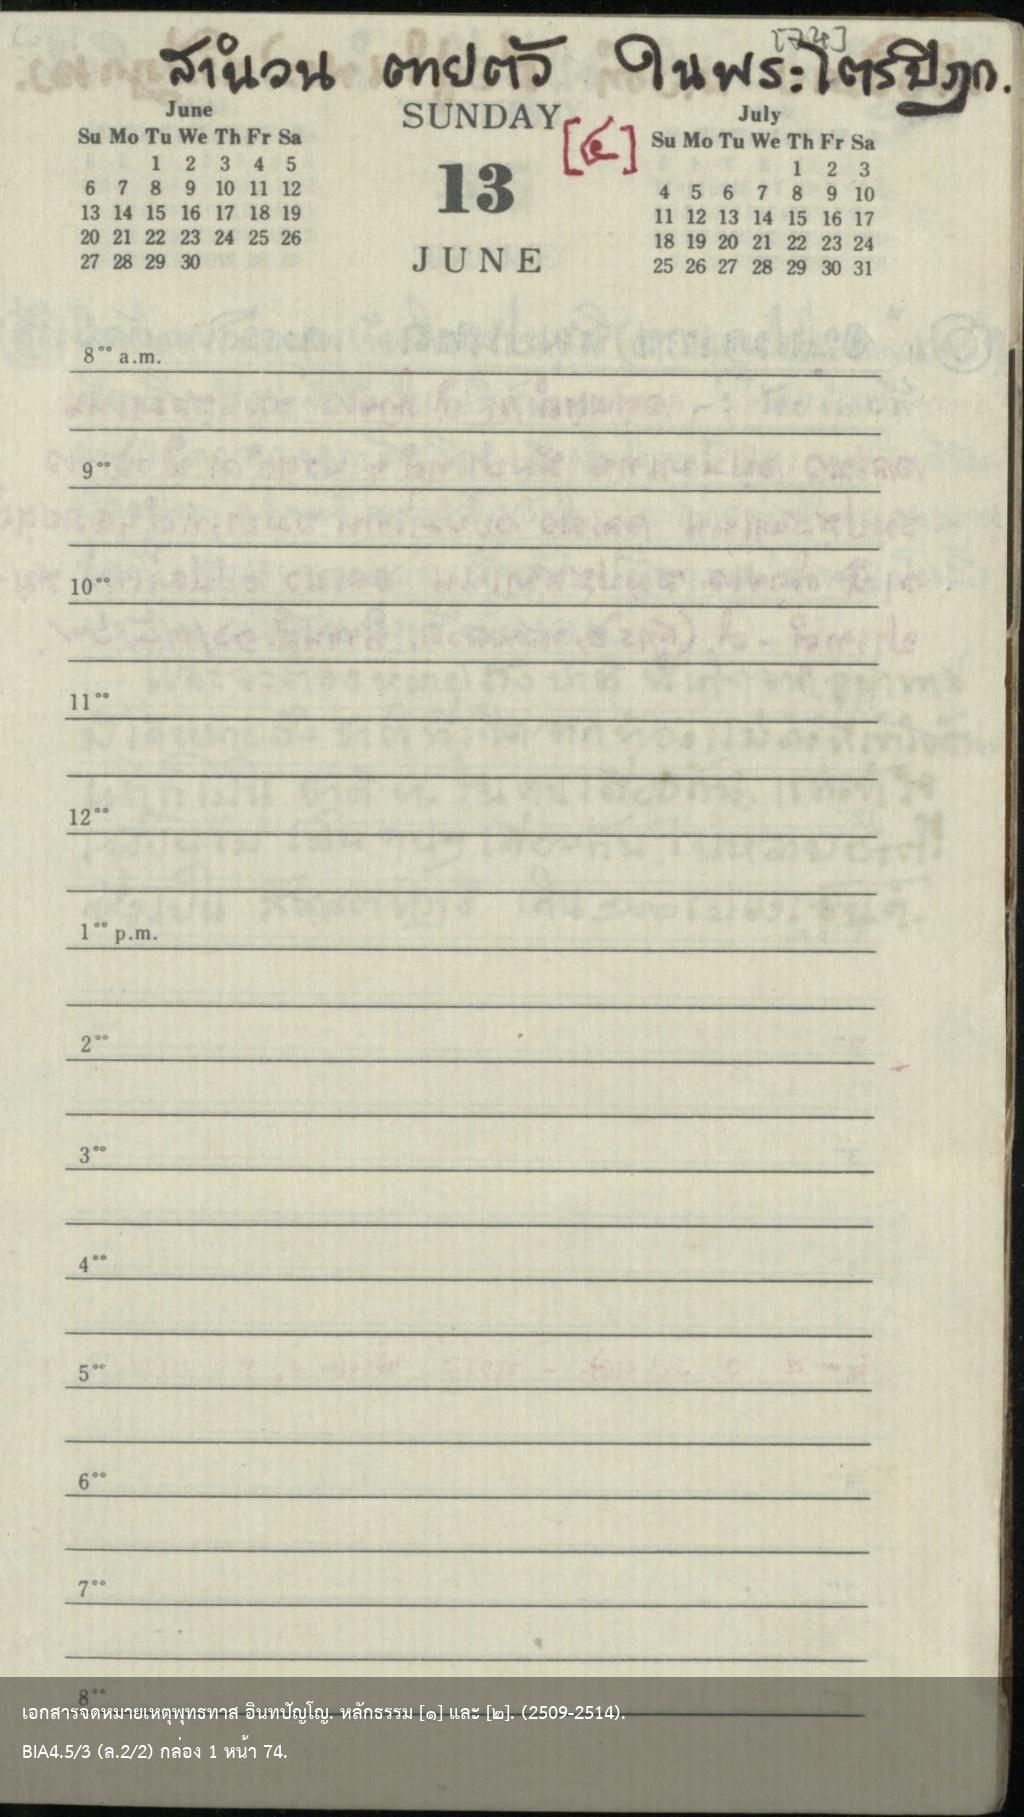 [74]
สำนวน ตายตัว ในพระไตรปิฎก.
June
Su Mo Tu We Th Fr Sa
1 2 3 4 5
6 7 8 9 10 11 12
13 14 15 16 17 18 19
20 21 22 23 24 25 26
27 28 29 30
SUNDAY
[๔]
13
JUNE
July
Su Mo Tu We Th Fr Sa
1 2 3
4 5 6 7 8 9 10
11 12 13 14 15 16 17
18 19 20 21 22 23 24
25 26 27 28 29 30 31
8°° a.m.
9°°
10°°
11°°
12°°
1°° p.m.
2°°
3°°
4°°
5°°
6°°
7°°
8°°
เอกสารจดหมายเหตุพุทธทาส อินทปัญโญ. หลักธรรม [๑] และ [๒]. (2509-2514).
BIA4.5/3 (ล.2/2) กล่อง 1 หน้า 74.